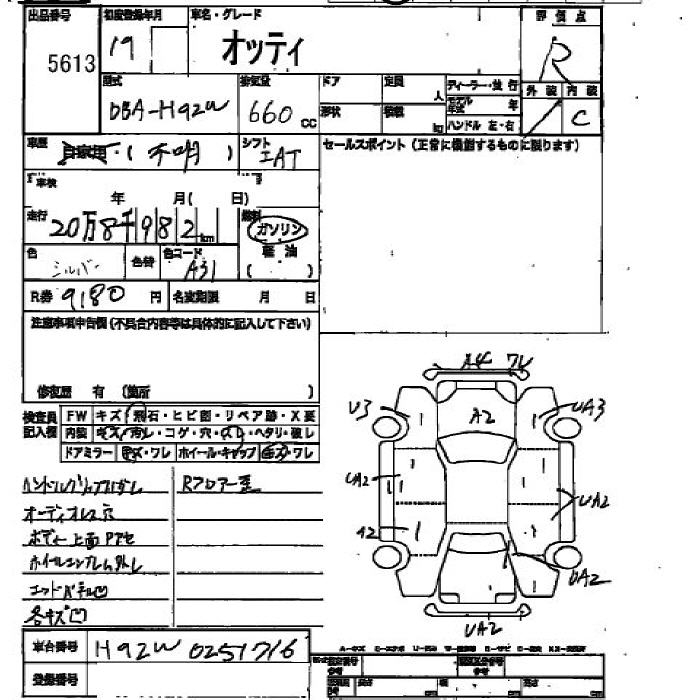 出品番号 初度登録年月 車名・グレード 評価点
5613 19 オッティ R
型式 排気量 ドア 定員 人 ディーラー・並行 外装 内装
DBA-H92W 660 cc 形状 積載 kg モデル年式 年 C
ハンドル 左・右
車歴 自家用・(不明) シフト IAT セールスポイント(正常に機能するものに限ります)
車検 年 月( 日)
走行 20万8千982km 燃料 ガソリン
軽油
( )
色 シルバー 色替 色コード A31
R券 9,180 円 名変期限 月 日
注意事項申告欄(不具合内容等は具体的に記入して下さい)
修復歴 有 (箇所 )
検査員記入欄 FW キズ・飛石・ヒビ割・リペア跡・X要
内装 キズ・汚レ・コゲ・穴・スレ・ヘタリ・破レ
ドアミラー キズ・ワレ ホイール・キャップ キズ・ワレ
Rフロアー歪
オーディオレス穴
ボディー上面
各キズ凹
A4 ワレ
U3 A2 UA3
UA2 UA2
A2
UA2
UA2
車台番号 H92W 0251716
登録番号